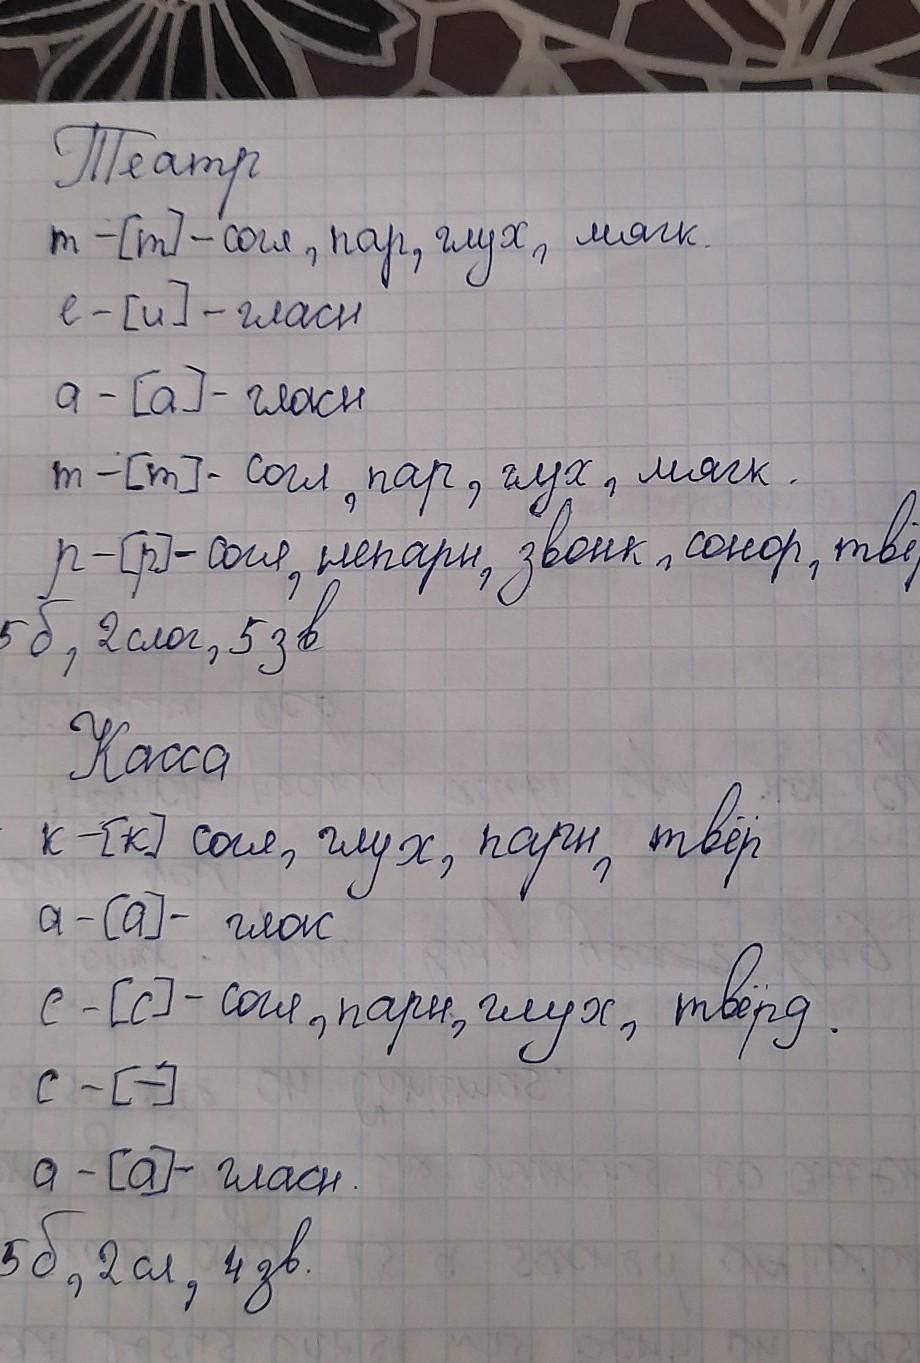 Театр
т-[т]-согл, пар, глух, мягк.
е-[и]-гласн
а-[а]-гласн
т-[т]-согл, пар, глух, мягк.
р-[р]-согл, непарн, звонк, сонор, твёр
5б, 2слог, 5зв
Касса
к-[к] согл, глух, парн, твёр
а-[а]-глас
с-[с]-согл, парн, глух, твёрд.
с-[-]
а-[а]-гласн.
5б, 2сл, 4зв.